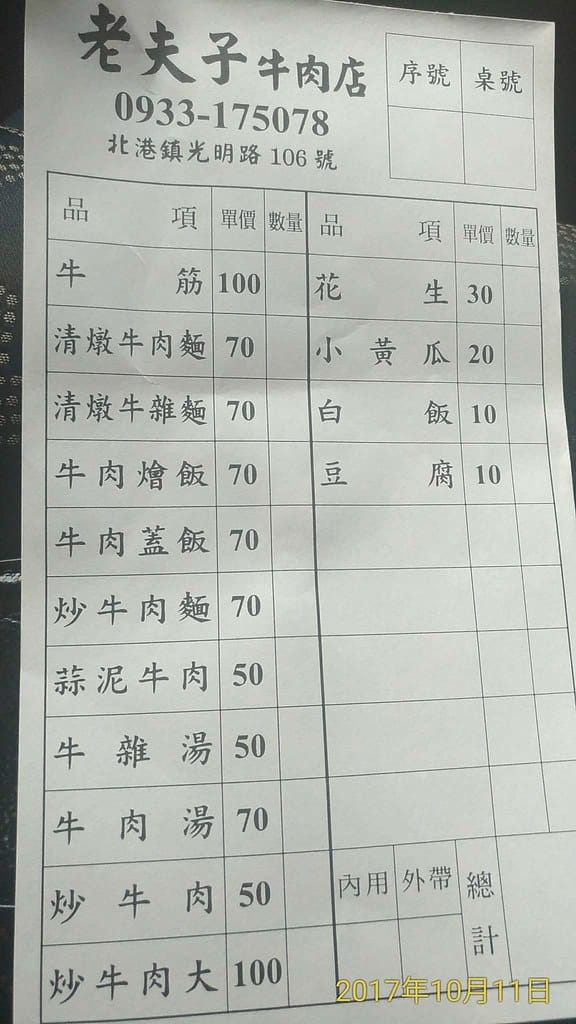 老夫子牛肉店
0933-175078
北港鎮光明路106號
序號 桌號
品項 單價 數量 品項 單價 數量
牛筋 100 花生 30
清燉牛肉麵 70 小黃瓜 20
清燉牛雜麵 70 白飯 10
牛肉燴飯 70 豆腐 10
牛肉蓋飯 70
炒牛肉麵 70
蒜泥牛肉 50
牛雜湯 50
牛肉湯 70
炒牛肉 50 內用 外帶 總計
炒牛肉大 100
2017年10月11日